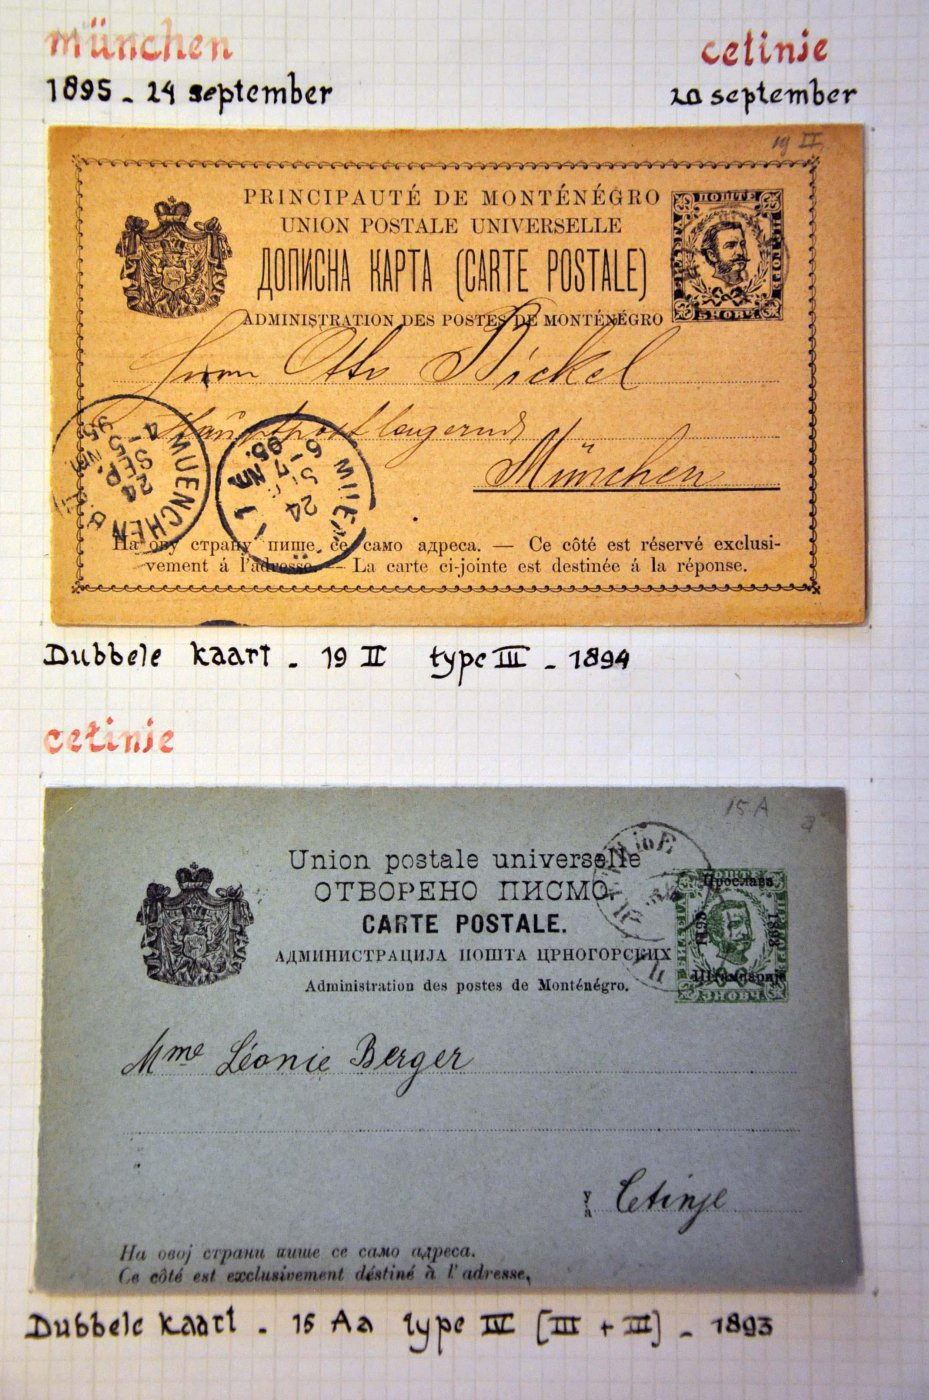 münchen
cetinje
1895 - 24 september
20 september
19 II
PRINCIPAUTÉ DE MONTÉNÉGRO
UNION POSTALE UNIVERSELLE
ДОПИСНА КАРТА (CARTE POSTALE)
ADMINISTRATION DES POSTES DE MONTÉNÉGRO
ПОШТЕ
НОВЧ
Herrn Otto Bickel
Hauptpostlagernd
München
MUENCHEN B.
24 SEP. NM
4-5
95
MUE
24 SEP NM
6-7
95.
1
На ову страну пише се само адреса. — Ce côté est réservé exclusi-
vement á l'adresse. — La carte ci-jointe est destinée á la réponse.
Dubbele kaart - 19 II type III - 1894
cetinje
15 A
a
Union postale universelle
ОТВОРЕНО ПИСМО.
CARTE POSTALE.
АДМИНИСТРАЦИЈА ПОШТА ЦРНОГОРСКИХ
Administration des postes de Monténégro.
Прослава
1493
1893
Штампарије
НОВЧ
Mme Léonie Berger
У
à
Cetinje
На овој страни пише се само адреса.
Ce côté est exclusivement déstiné à l'adresse,
Dubbele kaart - 15 Aa type IV [III + III] - 1893